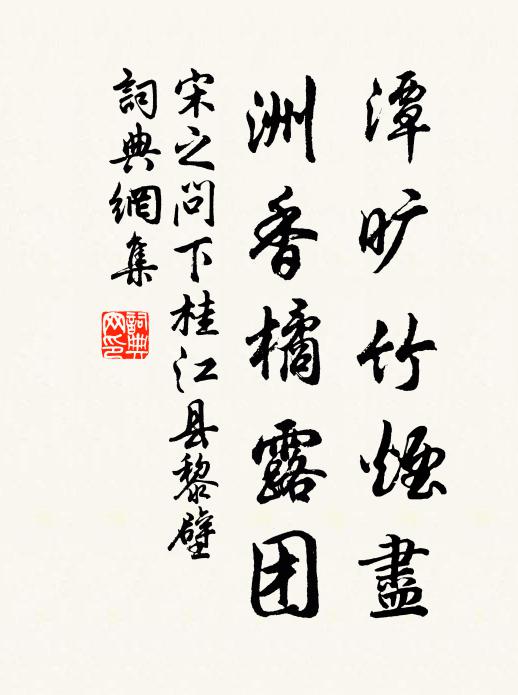 潭旷竹煙盡
洲香橘露团
宋之问下桂江县黎壁
詞典網集
詞典
网印